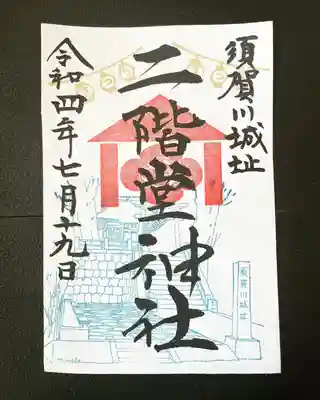 須賀川城址
二階堂神社
令和四年七月十九日
須賀川城址